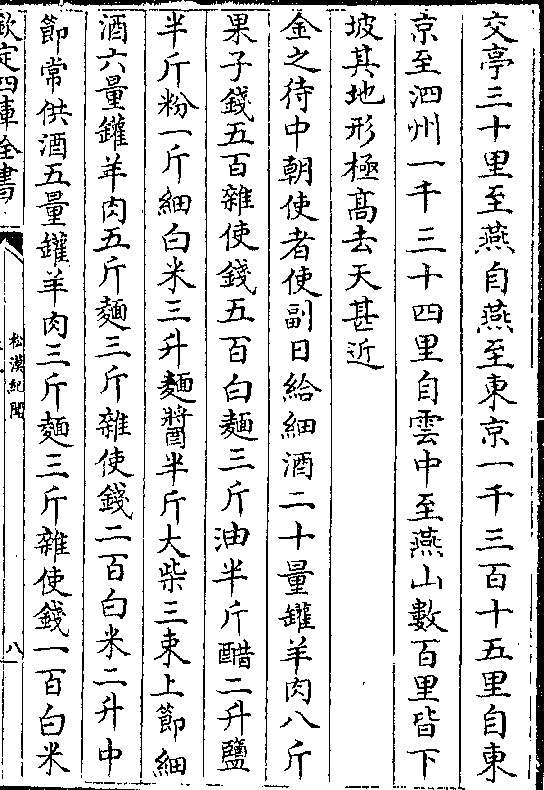 交亭三十里至燕自燕至東京一千三百十五里自東
京至泗州一千三十四里自雲中至燕山數百里皆下
坡其地形極髙去天甚近
金之待中朝使者使副日給細酒二十量罐羊肉八斤
果子錢五百雜使錢五百白麵三斤油半斤醋二升鹽
半斤粉一斤細白米三升麵醬半斤大柴三束上節細
酒六量罐羊肉五斤麵三斤雜使錢二百白米二升中
節常供酒五量罐羊肉三斤麵三斤雜使錢一百白米
欽定四庫全書
松漠紀聞
八